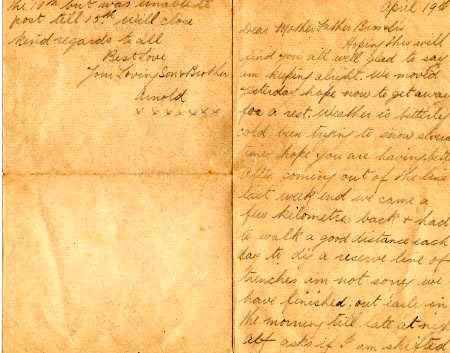 the 10th but was unable to
post till 15th will close
kind regards to all
Best Love
Your Loving Son & Brother
Arnold
x x x x x x x
April 19th
Dear Mother Father Bro & Sis
Hoping this will
find you all well glad to say
am keeping alright. We moved
yesterday hope now to get away
for a rest. Weather is bitterly
cold been trying to snow several
times hope you are having better
After coming out of the line
last week end we came a
few kilometres back & had
to walk a good distance each
day to dig a reserve line of
trenches am not sorry we
have finished, out early in
the morning till late at night
Alf asks if I am shifted